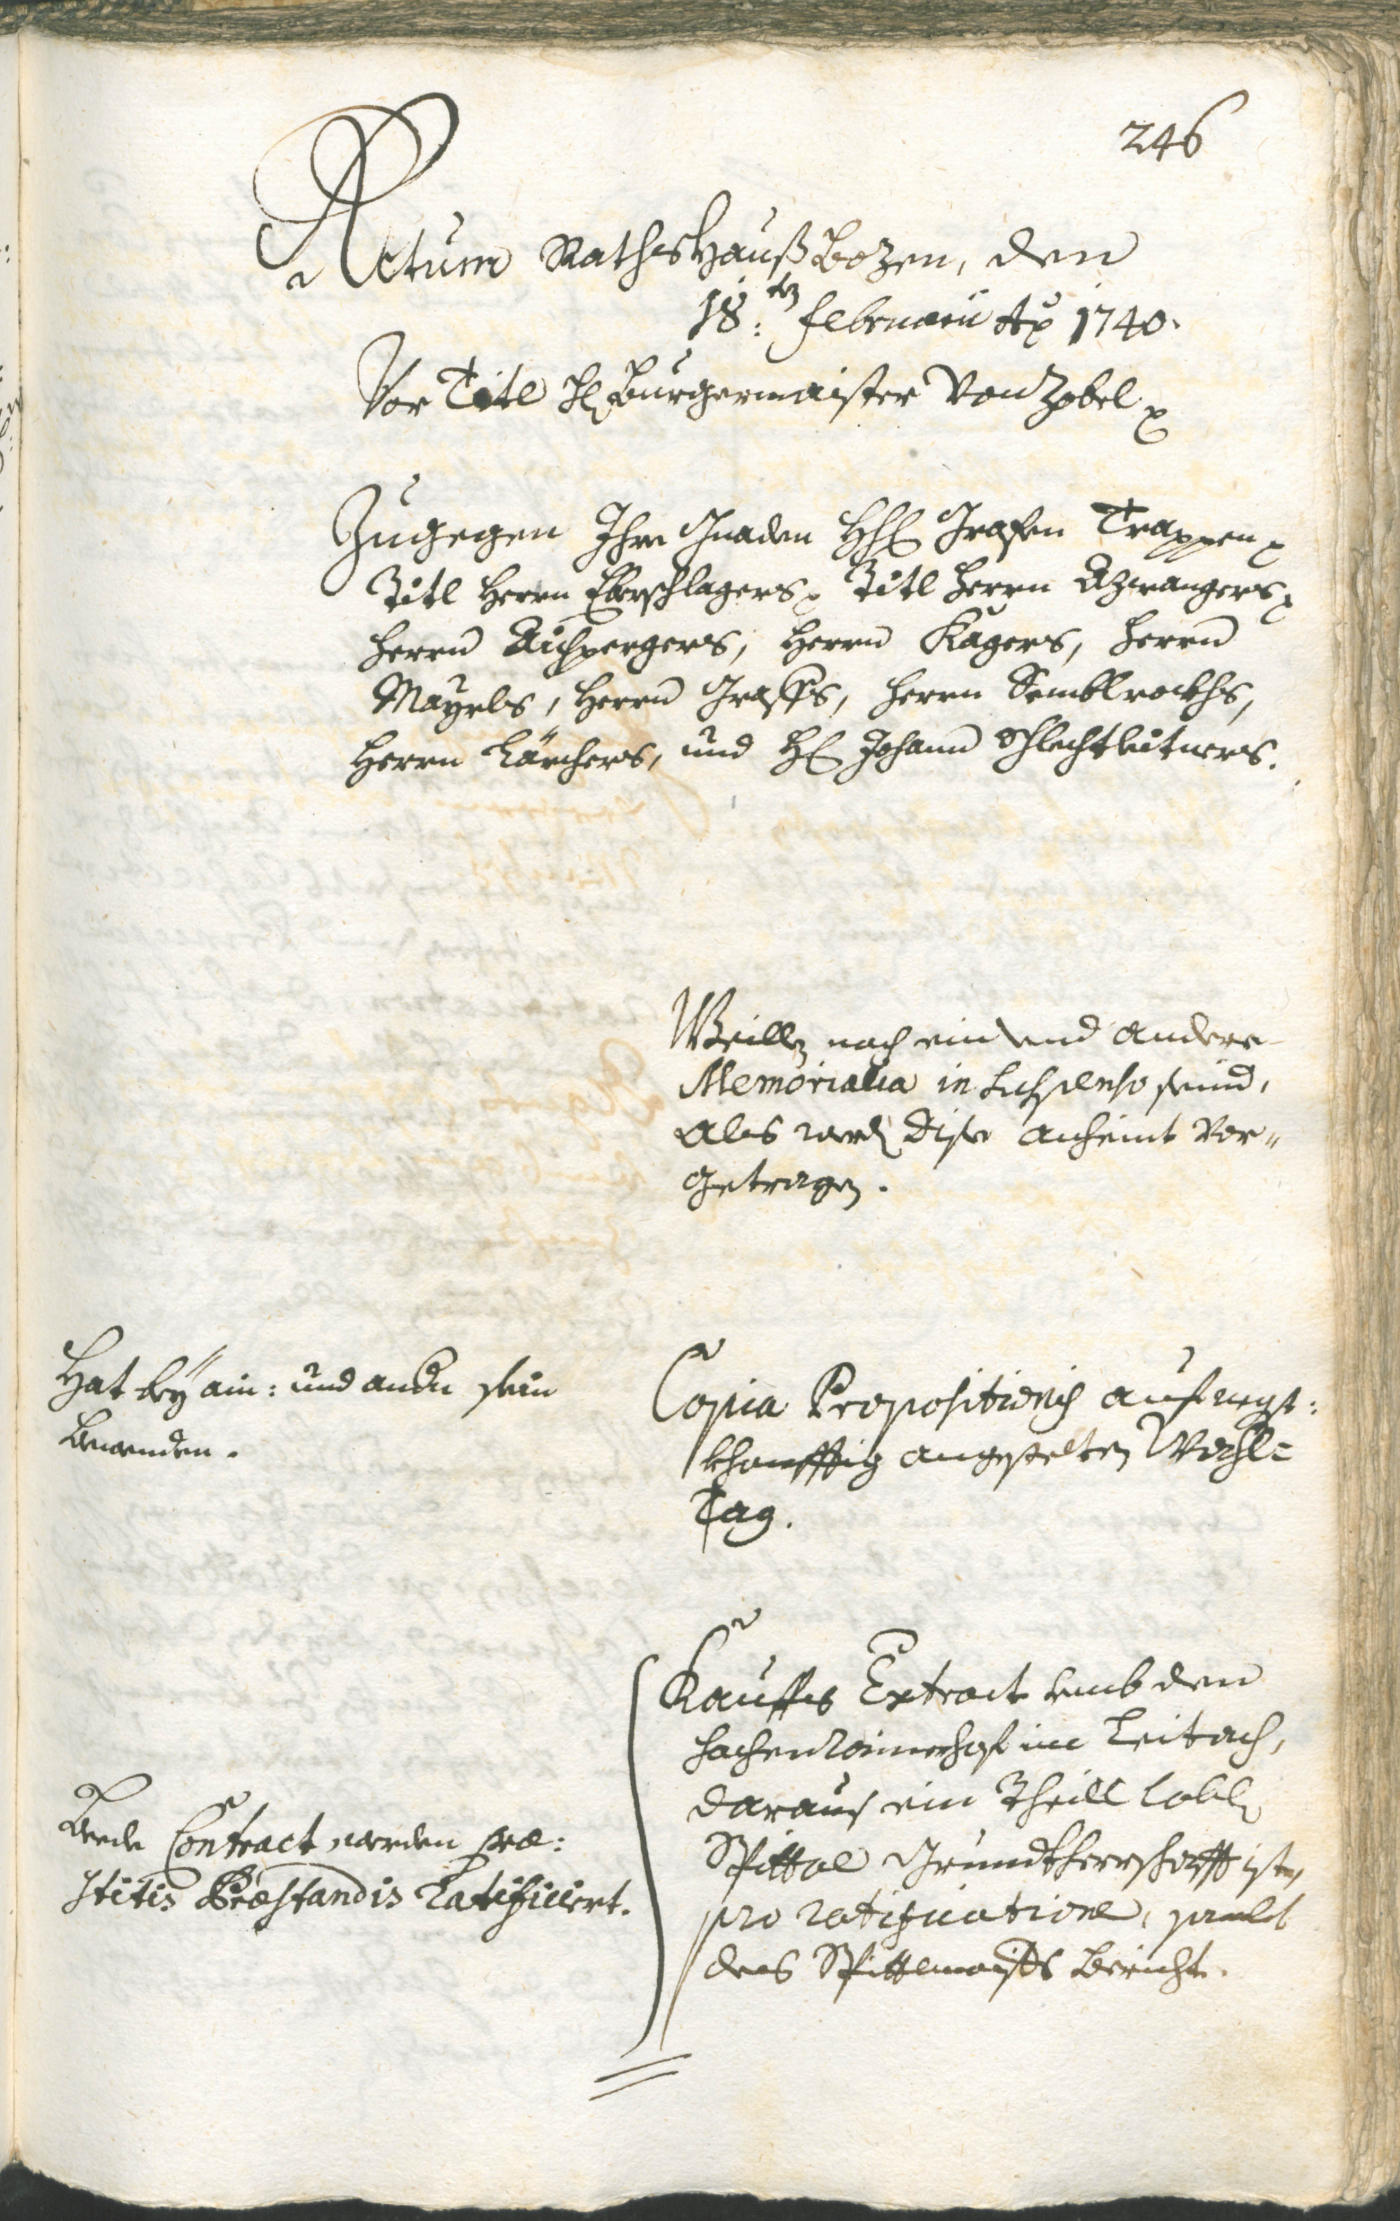 246
Actum Rathshauß Bozen, den
18:ten februarii Ao 1740.
Vor Titl H Burgermaister Von Zobel
Zugegen Ihro Gnaden HH Grafen Trappen
Titl Herrn Eberschlagers, Titl Herrn Azwangers
Herrn Aichpergers, Herrn Kagers, Herrn
Mayrls, Herrn Graffs, Herrn Semblrockhs,
Herrn Lärchers, und H Johann Schlechtleitners.
Weillen noch ein und andere
Memorialia in Suspenso seind,
als werden dise anheint vor-
getragen.
Hat bey ain: und anderen sein
bewenden.
Copia Propositionis auf negst:
khonfftig angestelten Wahl-
Tag.
Kauffs Extract umb den
im Leitach,
daraus ein Theill lobl
Spittal Grundtherrschafft ist,
pro ratificatione, sambt
des Spittlmaisters Bericht.
Beede Contract werden præ:
stitis Præstandis Ratificiert.